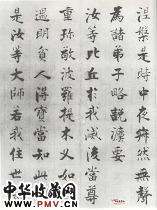 涅槃是時中夜寂然
為諸弟子略說法要
汝等比丘於我滅後當尊
重珍敬波羅提木叉如
遇明貧人得寶當知此
是汝等大師若我住世
中华收藏网